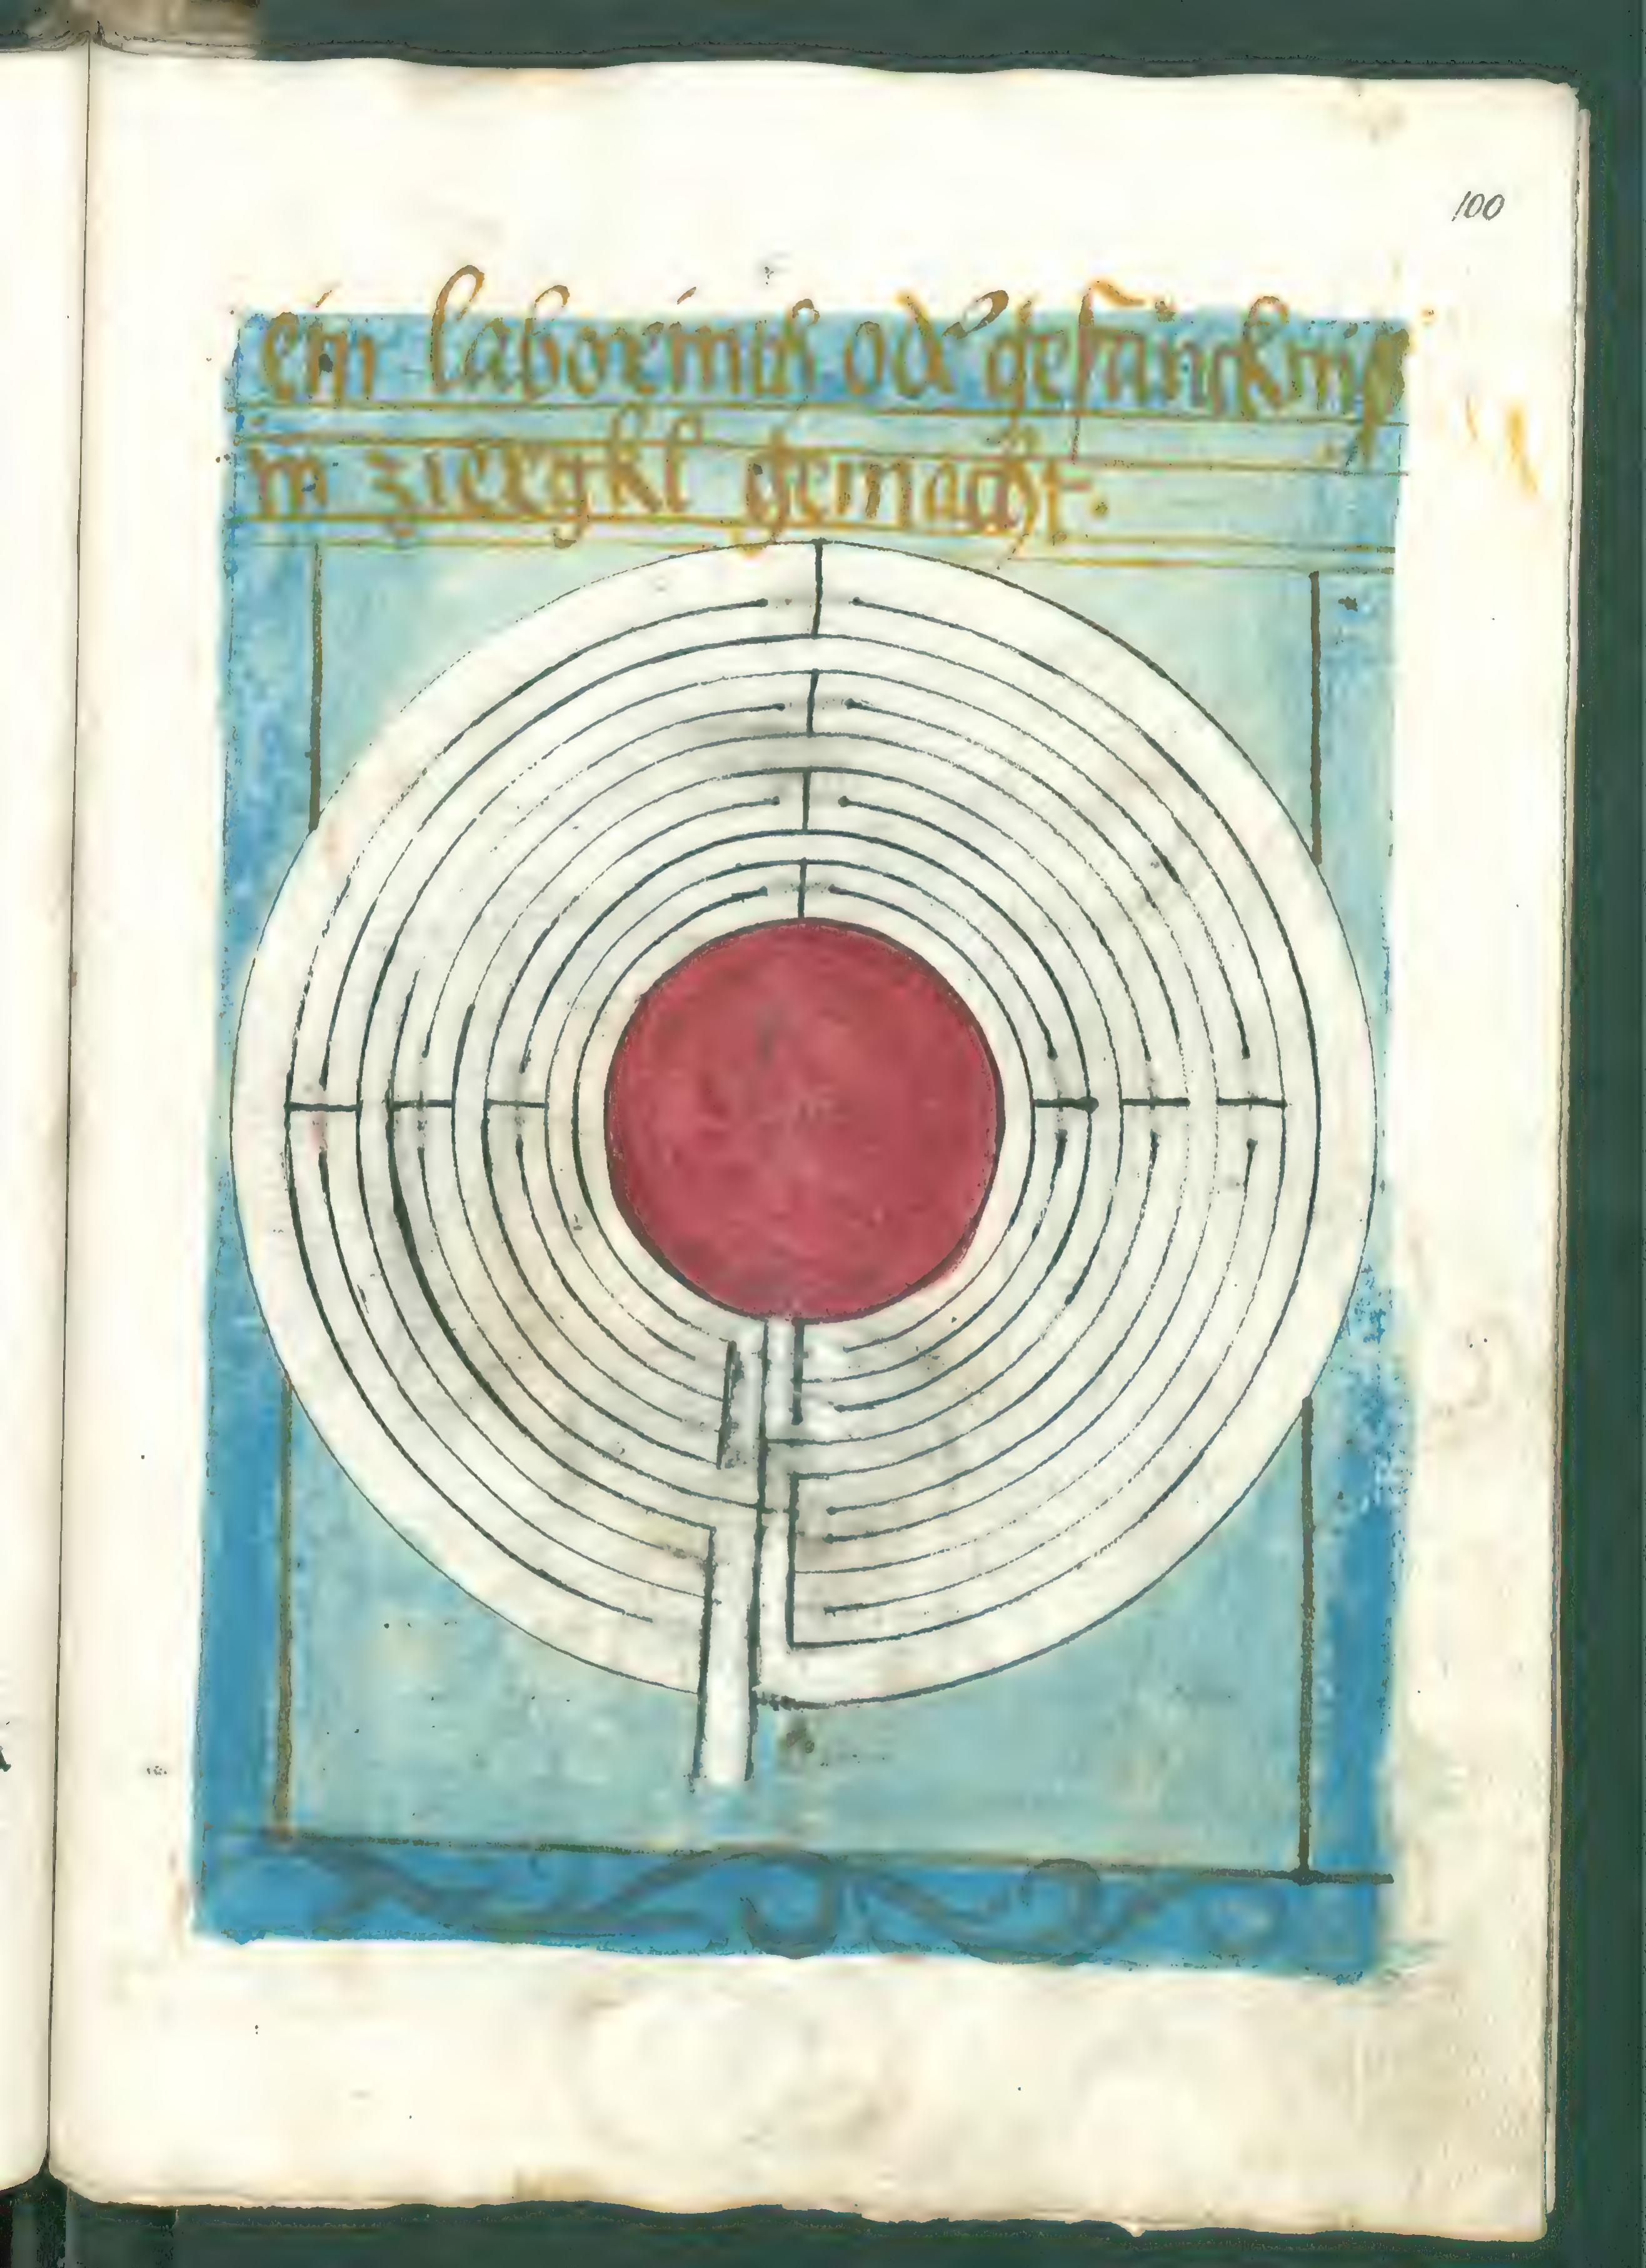 100
ein laborintus oder gefanncknis
in zierckl gemacht.